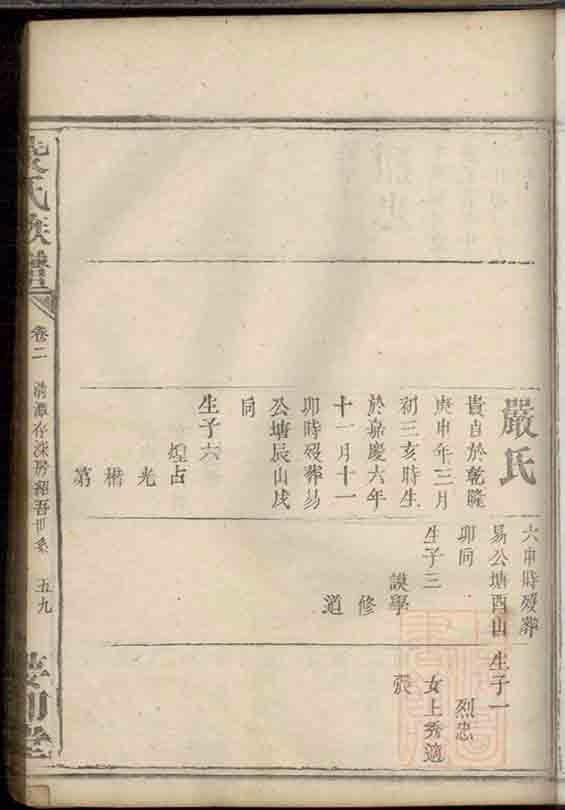 嚴氏
貴自於乾隆
庚申年三月
初三亥時生
於嘉慶六年
十一月十一
卯時歿葬易
公塘辰山戌
同
生子六
煌占
光
楷
第
六申時歿葬
易公塘酉山
卯同
生子三
謨學
修
道
生子一
烈忠
女上秀適
張
氏族譜
卷二
五九